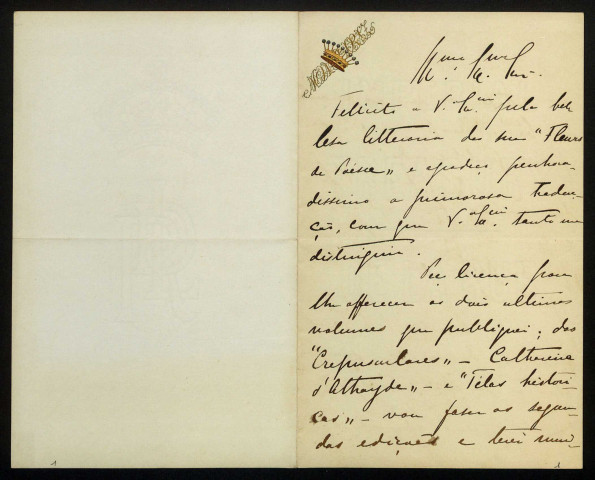 Felicito a V. Exª pela bel
lesa litteraria das sua "Fleurs
de Poésie" e agradeço penhora-
dissimo a primorosa traduc-
ção, com que V. Exª tanto me
distinguiu.
Peço licença para
lhe offerecer os dois ultimos
volumes que publiquei; das
"Crepusculares" – Catharina
d'Athayde" – e "Telas histori-
cas" – vou faser as segun-
das edições e terei mui-
1
1